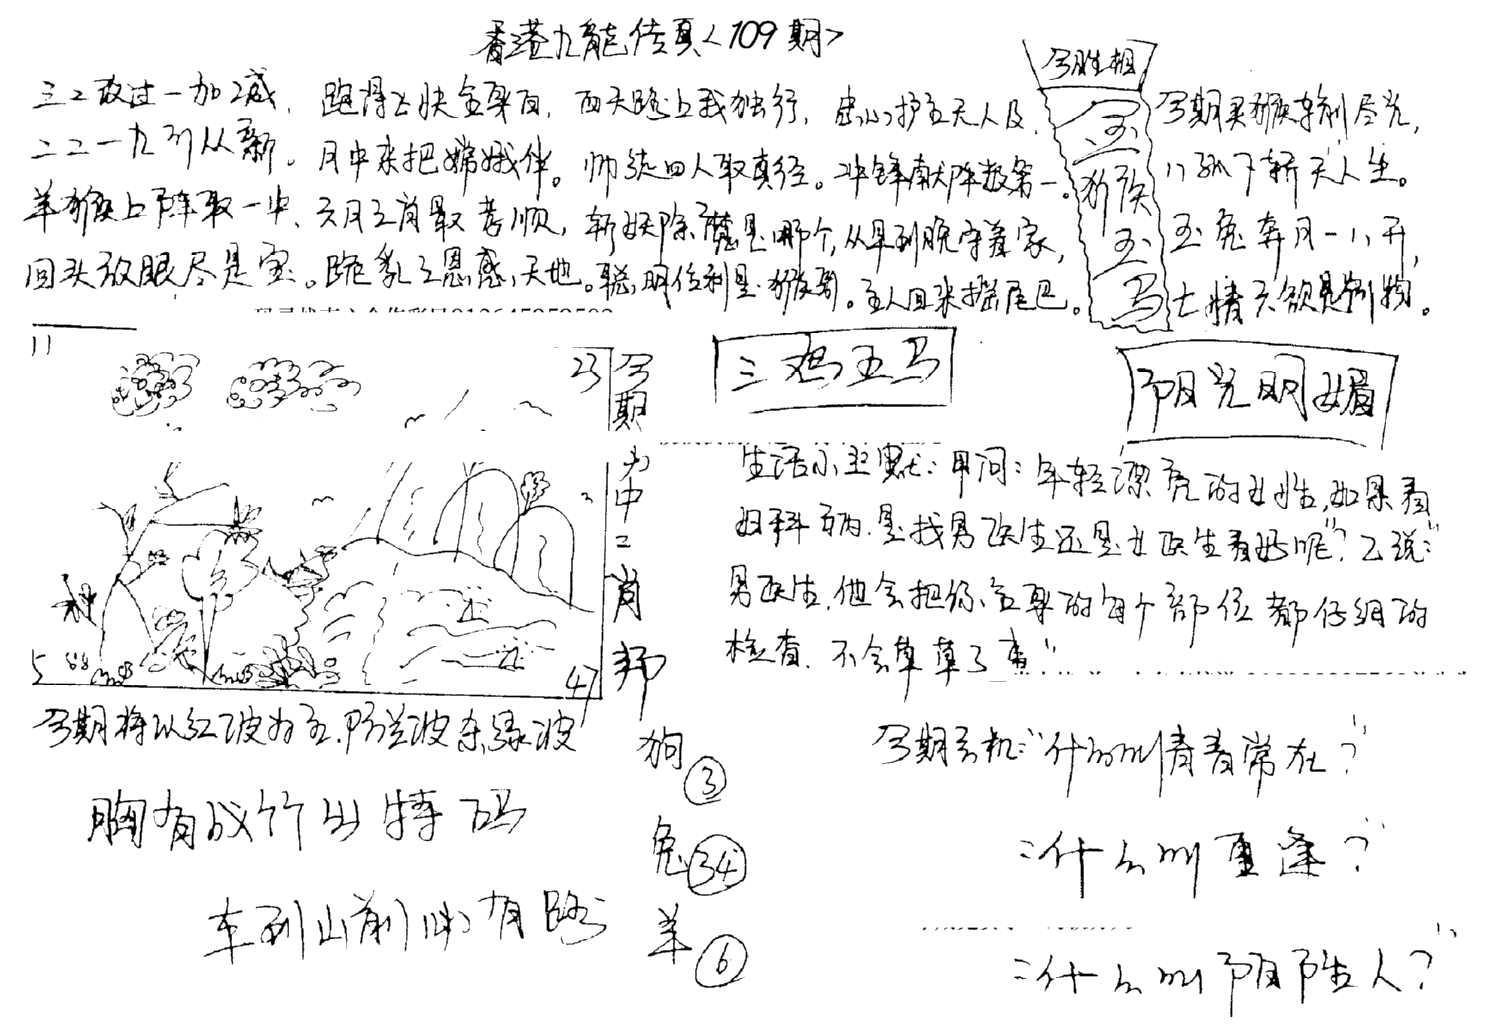 香港九龙传真<109期>
三二收过一加减，跑得上快全身白，西天路上我独行，忠心护主天人及，
二二一九列从新。月中来把嫦娥伴。师徒四人取真经。冲锋献阵数第一。
羊猴上阵取一中，六月之肖最孝顺，斩妖除魔是哪个，从早到晚守着家，
回头放眼尽是宝。跪乳之恩感天地。聪明伶利是猴哥。主人回来摇尾巴。
今胜相
玉猴玉马
今期买猴输尽光，
八孤下轿天人生。
玉兔奔月一八开，
七情六欲是别物。
11
23
5
47
今期为中二肖
狗③
兔㉞
羊⑥
三鸡五马
阳光明媚
生活小幽默：甲问：年轻漂亮的女性，如果看
妇科病，是找男医生还是女医生看好呢"？乙说："
男医生，他会把你全身的每个部位都仔细的
检查，不会草草了事"
今期将以红波为主，防兰波杀绿波
胸有成竹出特码
车到山前必有路
今期玄机："什么叫青春常在？"
："什么叫重逢？"
："什么叫陌陌生人？"